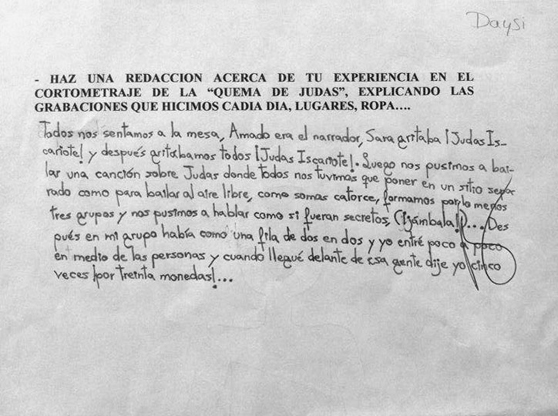 Daysi
- HAZ UNA REDACCION ACERCA DE TU EXPERIENCIA EN EL
CORTOMETRAJE DE LA “QUEMA DE JUDAS”, EXPLICANDO LAS
GRABACIONES QUE HICIMOS CADIA DIA, LUGARES, ROPA….
Todos nos sentamos a la mesa, Amado era el narrador, Sara gritaba ¡Judas Is-
cariote! y después gritabamos todos ¡Judas Iscariote!. Luego nos pusimos a bai-
lar una canción sobre Judas donde todos nos tuvimos que poner en un sitio sepa-
rado como para bailar al aire libre, como somas catorce, formamos por lo menos
tres grupos y nos pusimos a hablar como si fueran secretos, Des
pués en mi grupo había como una fila de dos en dos y yo entré poco a poco
en medio de las personas y cuando llegué delante de esa gente dije yo cinco
veces ¡por treinta monedas!...